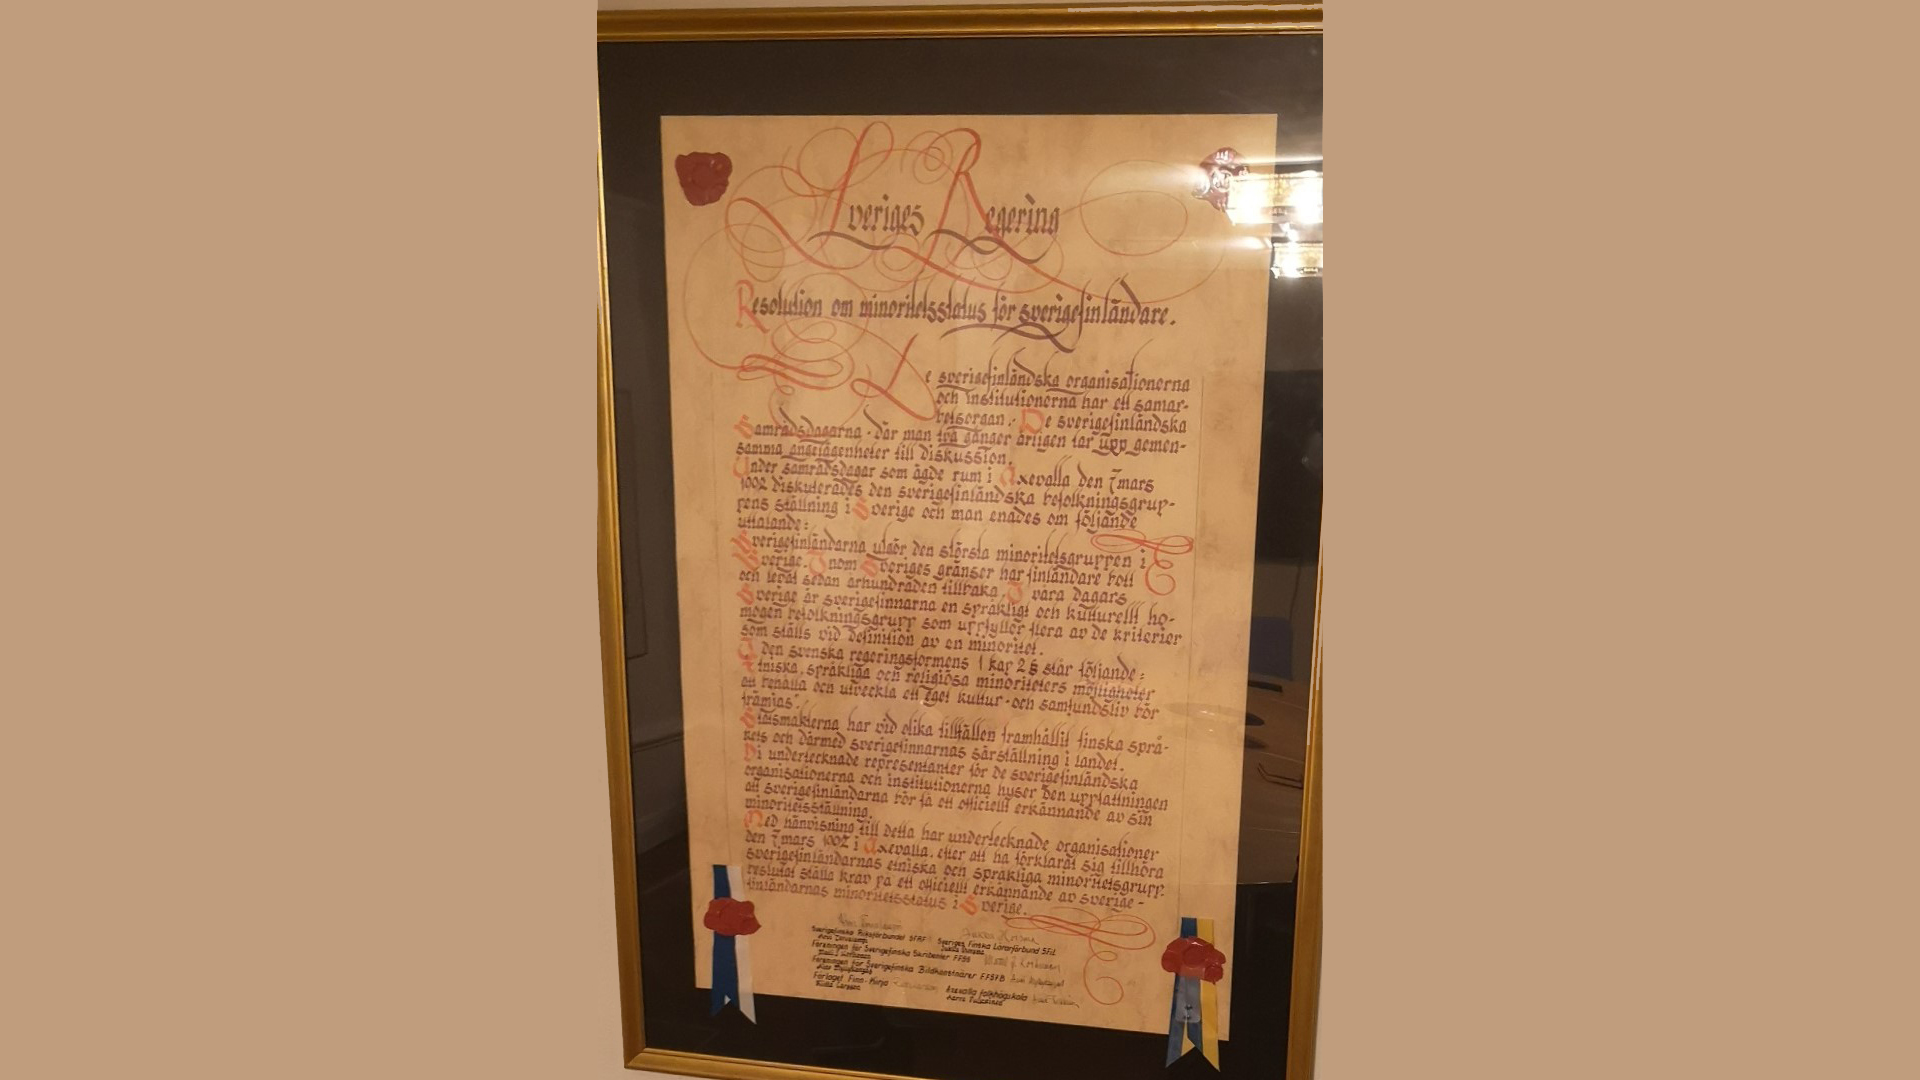 Sveriges Regering
Resolution om minoritetsstatus för sverigefinländare.
De sverigefinländska organisationerna
och institutionerna har ett samar-
betsorgan. De sverigefinländska
Samrådsdagarna - där man två gånger årligen tar upp gemen-
samma angelägenheter till diskussion.
Under samrådsdagar som ägde rum i Axevalla den 7 mars
1992 diskuterades den sverigefinländska befolkningsgrup-
pens ställning i Sverige och man enades om följande
uttalande:
Sverigefinländarna utgör den största minoritetsgruppen i
Sverige. Inom Sveriges gränser har finländare bott
och levat sedan århundraden tillbaka. I våra dagars
Sverige är sverigefinnarna en språkligt och kulturellt ho-
mogen befolkningsgrupp som uppfyller flera av de kriterier
som ställs vid definition av en minoritet.
I den svenska regeringsformens 1 kap 2 § står följande:
Etniska, språkliga och religiösa minoriteters möjligheter
att behålla och utveckla ett eget kultur- och samfundsliv bör
främjas".
Statsmakterna har vid olika tillfällen framhållit finska språ-
kets och därmed sverigefinnarnas särställning i landet.
Vi undertecknade representanter för de sverigefinländska
organisationerna och institutionerna hyser den uppfattningen
att sverigefinländarna bör få ett officiellt erkännande av sin
minoritetsställning.
Med hänvisning till detta har undertecknade organisationer
den 7 mars 1992 i Axevalla, efter att ha förklarat sig tillhöra
sverigefinländarnas etniska och språkliga minoritetsgrupp,
beslutat ställa krav på ett officiellt erkännande av sverige-
finländarnas minoritetsstatus i Sverige.
Sverigefinska Riksförbundet SFRF Sveriges Finska Lärarförbund SFL
Föreningen för Sverigefinska Skribenter FFSS
Föreningen för Sverigefinska Bildkonstnärer FFSFB
Förlaget Finn-Kirja Axevalla folkhögskola
Larsson